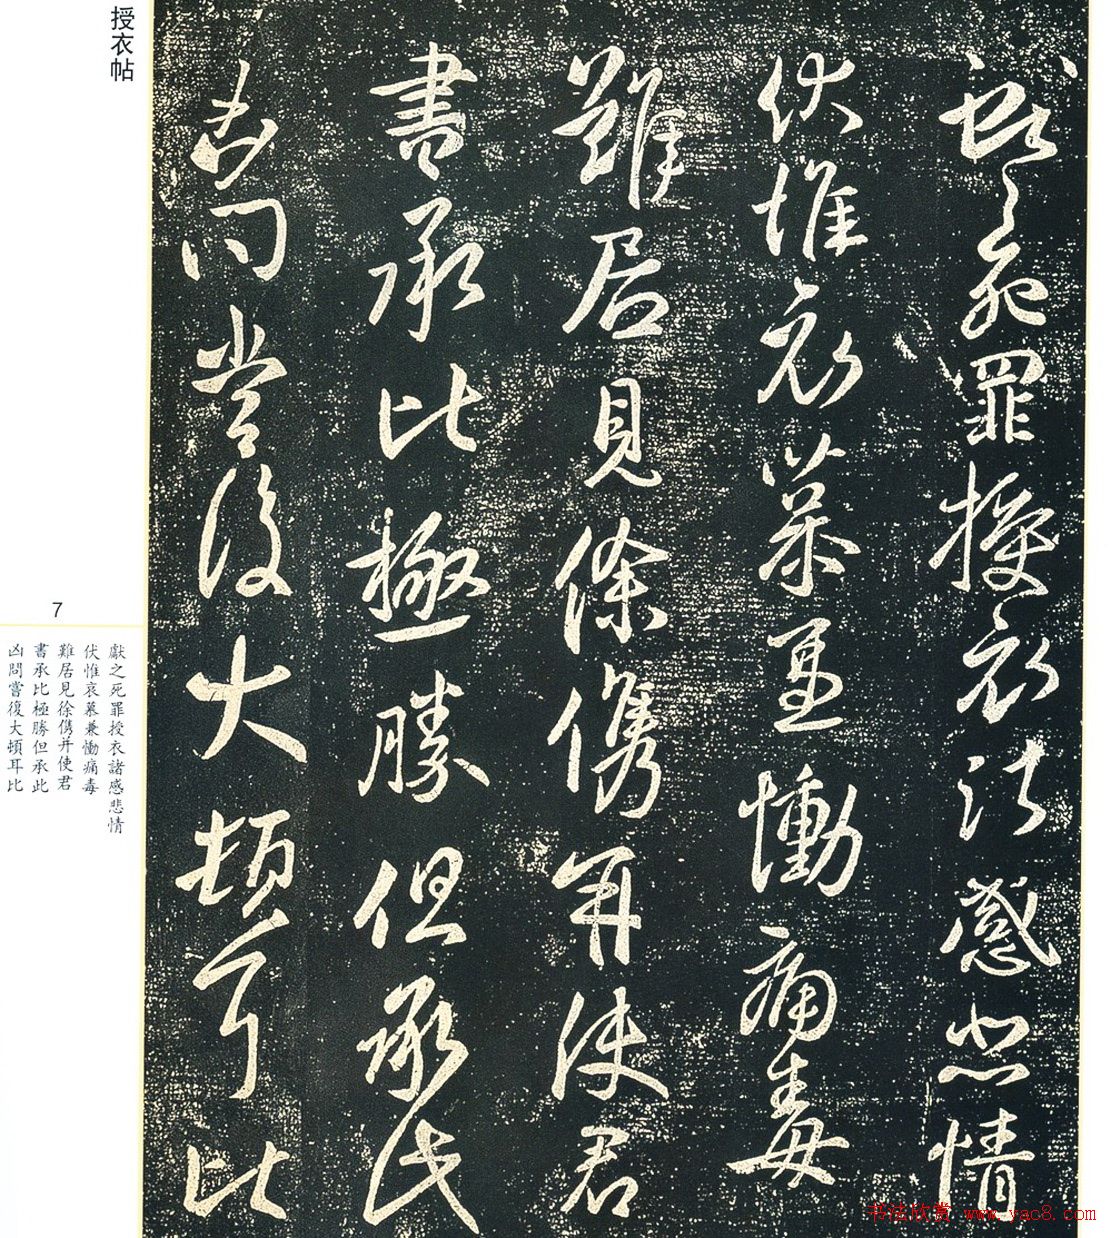 授衣帖
獻之死罪授衣諸感悲情
伏惟哀慕兼慟痛毒
難居見徐儁并使君
書承比極勝但承此
凶問嘗復大頓耳比
7
獻之死罪授衣諸感悲情
伏惟哀慕兼慟痛毒
難居見徐儁并使君
書承比極勝但承此
凶問嘗復大頓耳比
书法欣赏 www.yac8.com